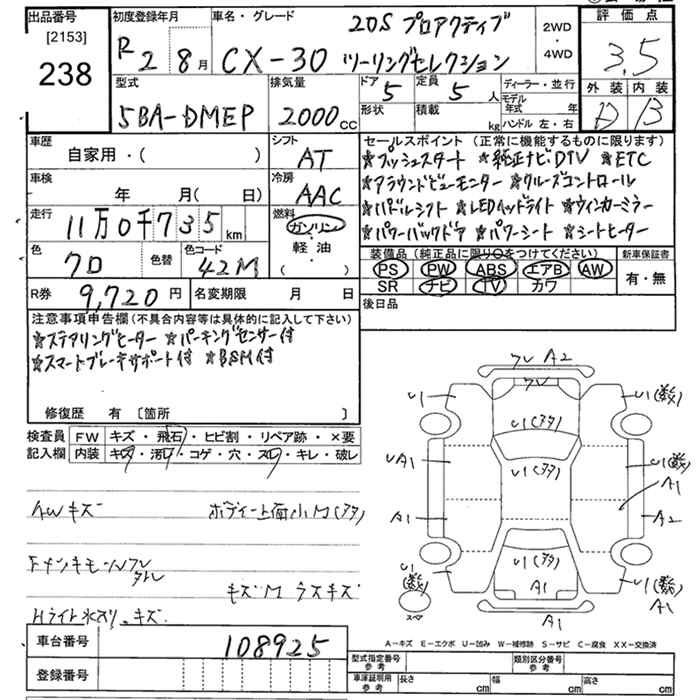 出品番号
[2153]
238
初度登録年月
R2 8月
車名・グレード
20S プロアクティブ
CX-30 ツーリングセレクション
2WD
・
4WD
評価点
3.5
外装 内装
D B
型式
5BA-DMEP
排気量
2000CC
ドア
5
定員
5人
形状
積載
kg
ディーラー・並行
モデル年式 年
ハンドル 左・右
車歴
自家用・( )
シフト
AT
車検
年 月( 日)
冷房
AAC
走行
11万0千735km
燃料
ガソリン
軽・油
・
( )
色
クロ
色替
色コード
42M
R券 9,720円
名変期限 月 日
セールスポイント (正常に機能するものに限ります)
★プッシュスタート ★純正ナビDTV ★ETC
★アラウンドビューモニター ★クルーズコントロール
★パドルシフト ★LEDヘッドライト ★ウィンカーミラー
★パワーバックドア ★パワーシート ★シートヒーター
装備品 (純正品に限り○をつけてください)
新車保証書
PS PW ABS エアB AW
SR ナビ TV カワ
有・無
後日品
注意事項申告欄(不具合内容等は具体的に記入して下さい)
★ステアリングヒーター ★パーキングセンサー付
★スマートブレーキサポート付 ★BSM付
修復歴 有 [箇所 ]
検査員
記入欄
FW キズ・飛石・ヒビ割・リペア跡・×要
内装 キズ・汚レ・コゲ・穴・スレ・キレ・破レ
AWキズ ボディー上面小M(多タ)
キズM ラスキズ
Hライト水スリ、キズ
ワレ A2
ワレ
U1
U1(多タ)
U1(数)
UA1
U1(多タ)
U1(数)
A1
A1
A2
U1(数)
U1(多タ)
A1
U1(数)
A1
A1
スペア
A-キズ E-エクボ U-凹み W-補修跡 S-サビ C-腐食 XX-交換済
車台番号
108925
登録番号
型式指定番号
参考
類別区分番号
参考
車庫証明用
参考
長さ cm
幅 cm
高さ cm